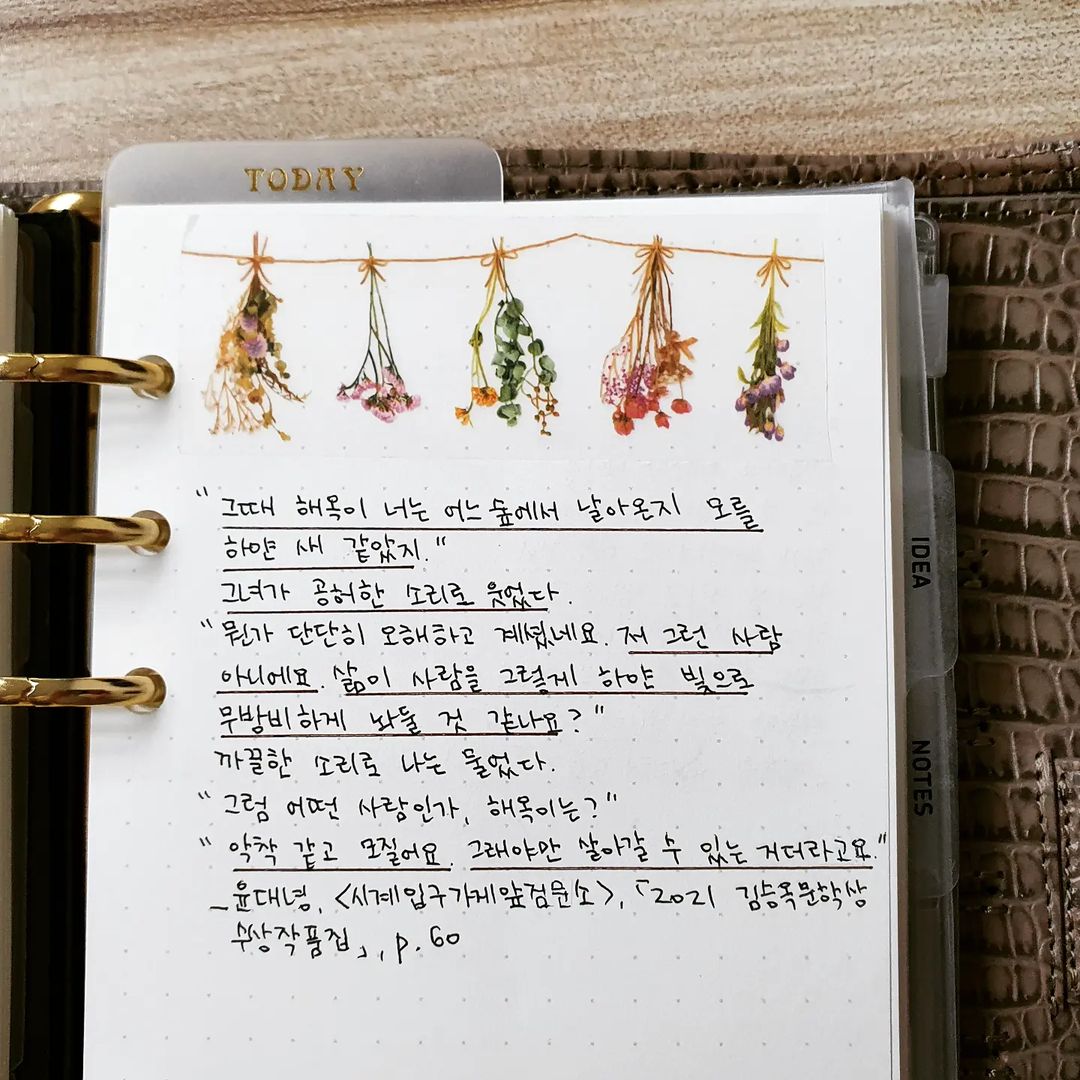 TODAY
"그때 해옥이 너는 어느 숲에서 날아온지 모를
하얀 새 같았지."
그녀가 공허한 소리로 웃었다.
"뭔가 단단히 오해하고 계셨네요. 저 그런 사람
아니에요. 삶이 사람을 그렇게 하얀 빛으로
무방비하게 놔둘 것 같나요?"
까끌한 소리로 나는 물었다.
"그럼 어떤 사람인가, 해옥이는?"
"악착 같고 모질어요. 그래야만 살아갈 수 있는 거더라고요."
_윤대녕, <시계입구가게앞검문소>, 「2021 김승옥문학상
수상작품집」, p.60
IDEA
NOTES